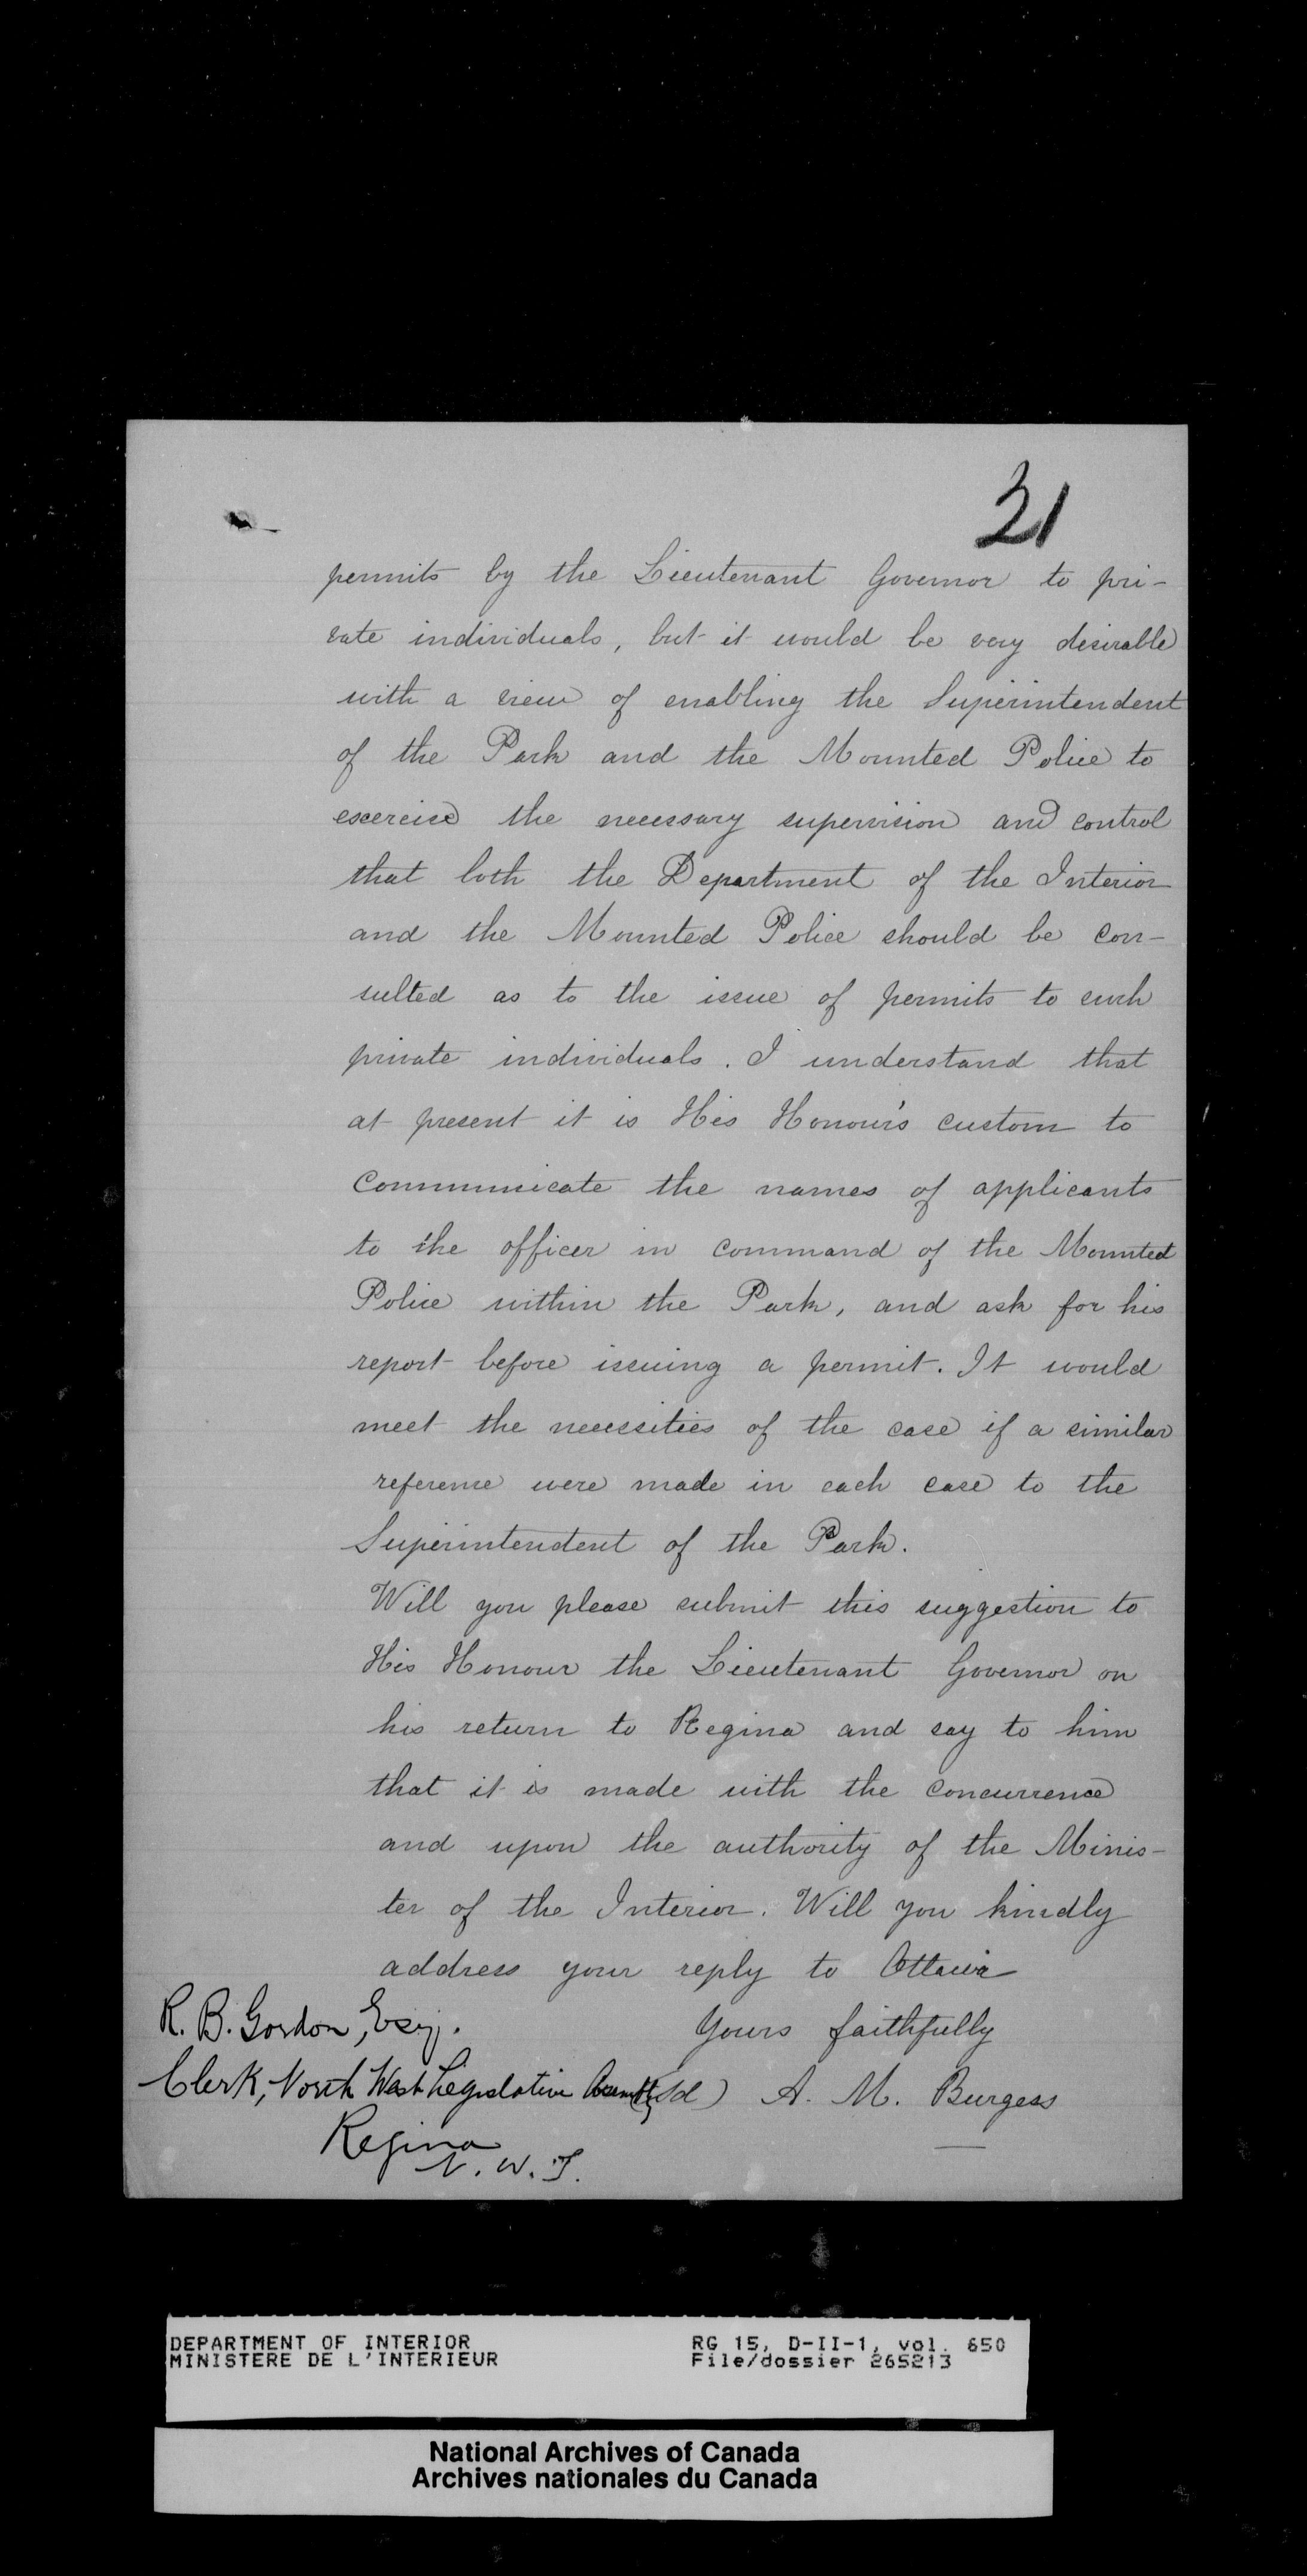 31
permits by the Lieutenant Governor to pri-
vate individuals, but it would be very desirable
with a view of enabling the Superintendent
of the Park and the Mounted Police to
exercise the necessary supervision and control
that both the Department of the Interior
and the Mounted Police should be con-
sulted as to the issue of permits to such
private individuals. I understand that
at present it is His Honour's custom to
communicate the names of applicants
to the officer in command of the Mounted
Police within the Park, and ask for his
report before issuing a permit. It would
meet the necessities of the case if a similar
reference were made in each case to the
Superintendent of the Park.
Will you please submit this suggestion to
His Honour the Lieutenant Governor on
his return to Regina and say to him
that it is made with the concurrence
and upon the authority of the Minis-
ter of the Interior. Will you kindly
address your reply to Ottawa
Yours faithfully
(Sd) A. M. Burgess
R. B. Gordon, Esq.
Clerk, North West Legislative Assembly
Regina
N. W. T.
DEPARTMENT OF INTERIOR
MINISTERE DE L'INTERIEUR
RG 15, D-II-1, vol. 650
File/dossier 265213
National Archives of Canada
Archives nationales du Canada